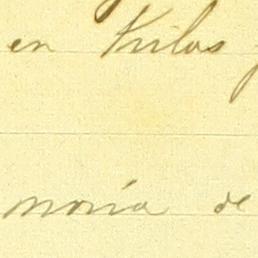 en Kilos
moria de